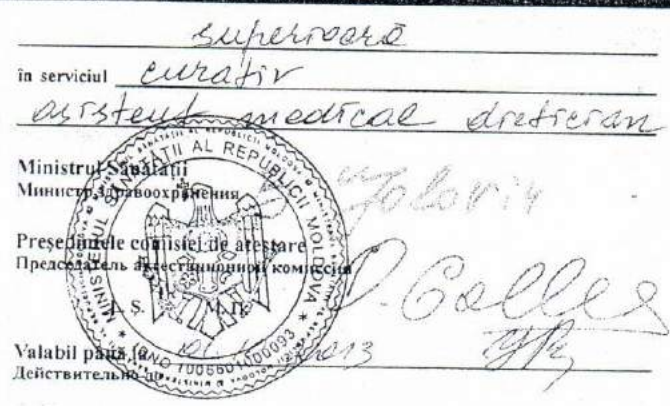 superioară
în serviciul curativ
asistent medical dietician
Ministrul Sănătății
Министр здравоохранения
Președintele comisiei de atestare
Председатель аттестационной комиссии
L. Ș. М.П.
Valabil până la 2013
Действительно до
MINISTERUL SĂNĂTĂȚII AL REPUBLICII MOLDOVA
IDNO 1006601000093